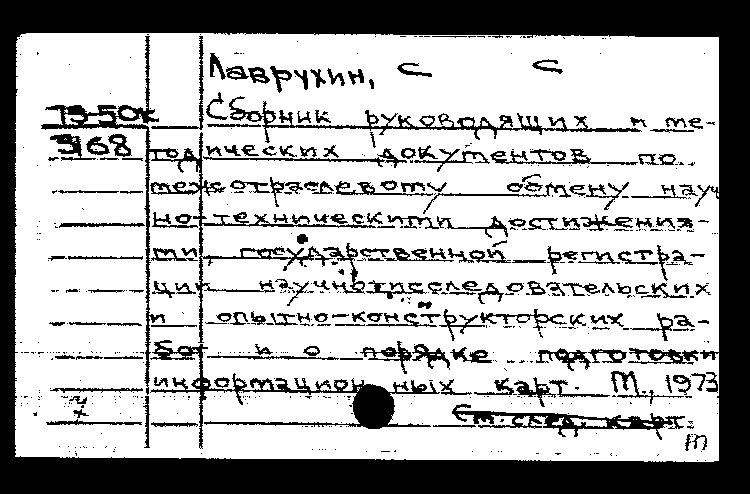 Лаврухин, С С
73-50к Сборник руководящих и ме-
3168 тодических документов по
межотраслевому обмену науч
но-техническими достижения-
ми, государственной регистра-
ции научно-исследовательских
и опытно-конструкторских ра-
бот и о порядке подготовки
информационных карт. М., 1973
См. след. карт.
m